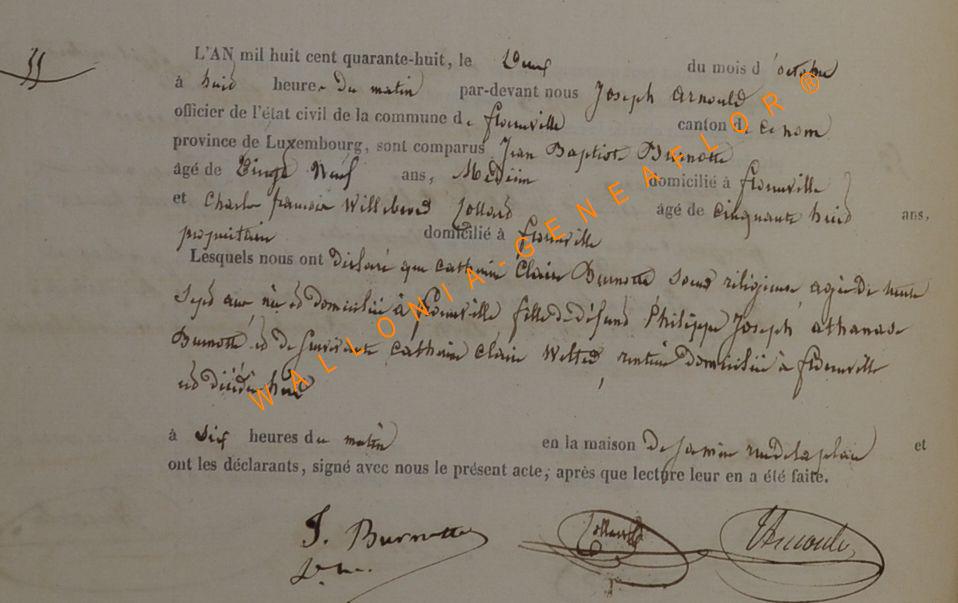 L'AN mil huit cent quarante-huit, le Deux du mois d'octobre
à huit heures du matin par-devant nous Joseph Arnould
officier de l'état civil de la commune de florenville canton de ce nom
province de Luxembourg, sont comparus Jean Baptiste Burnotte
âgé de Vingt Neuf ans, Médecin domicilié à florenville
et Charles françois Willebrord Collard âgé de cinquante huit ans,
propriétaire domicilié à florenville
Lesquels nous ont déclaré que catherine Claire Burnotte soeur religieuse agée De trente
sept ans née et domiciliée à florenville fille de défunt Philippe Joseph athanase
Burnotte et de survivante catherine Claire rentière domiciliée à florenville
est décédée hier
à six heures du matin en la maison de sa mère rue de la place et
ont les déclarants, signé avec nous le présent acte, après que lecture leur en a été faite.
J. Burnotte Collard Arnould
WALLONIA-GENEAFLOR ®